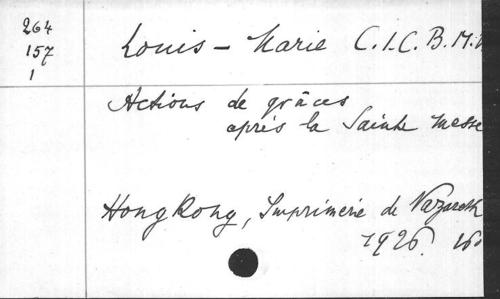 264
157
1
Louis - Marie C.I.C.B.M.
Actions de grâces
après la Sainte Messe
Hong Kong, Imprimerie de Nazareth
1926. 16